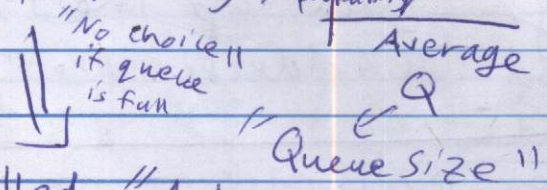 "No choice"
if queue
is full
Average
Q
"Queue size"